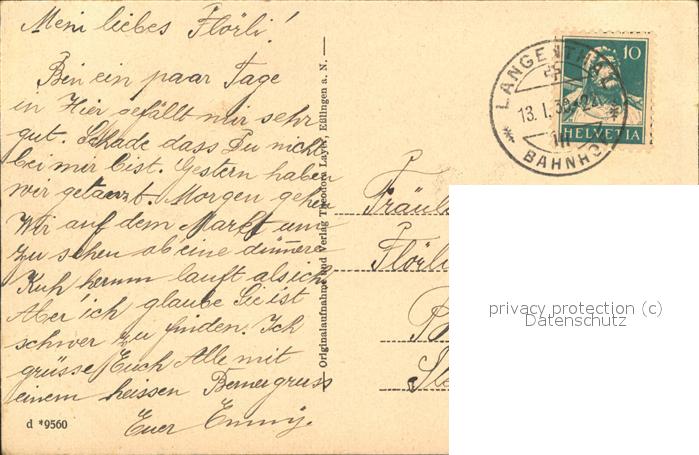 Mein liebes Flörli!
Bin ein paar Tage
in Hier gefällt mir sehr
gut. Schade dass Du nicht
bei mir bist. Gestern haben
wir getanzt. Morgen gehen
Wir auf dem Markt um
zu sehen ob eine dümmere
Kuh herum lauft als ich
Aber ich glaube Sie ist
schwer zu finden. Ich
grüsse Euch Alle mit
einem heissen Bernergruss
Euer Emmy.
d *9560
Originalaufnahme und Verlag Theodora Layer, Esslingen a. N.
LANGENTHAL
13. I. 39
BAHNHOF
10
HELVETIA
Fräul
Flörli
privacy protection (c)
Datenschutz